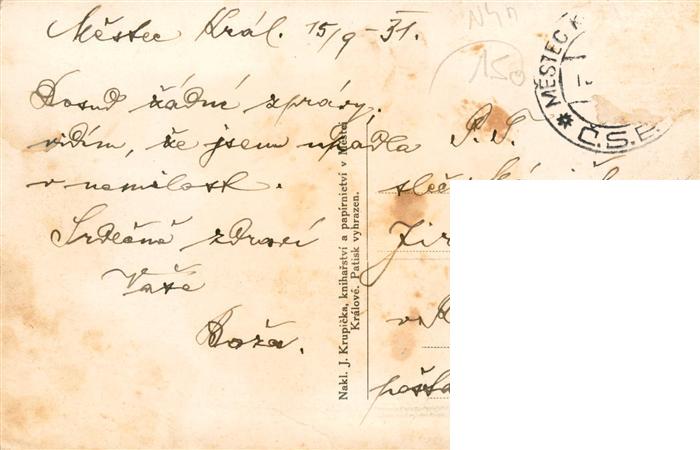 Městec Král. 15/9 - 31.
Dosud žádné zprávy.
vidím, že jsem upadla
v nemilost.
Srdečně zdraví
Vaše
Boža.
Nakl. J. Krupička, knihařství a papírnictví v Městci
Králové. Patisk vyhrazen.
150
MĚSTEC K
Č.S.E.
P. T.
Jir
pošta